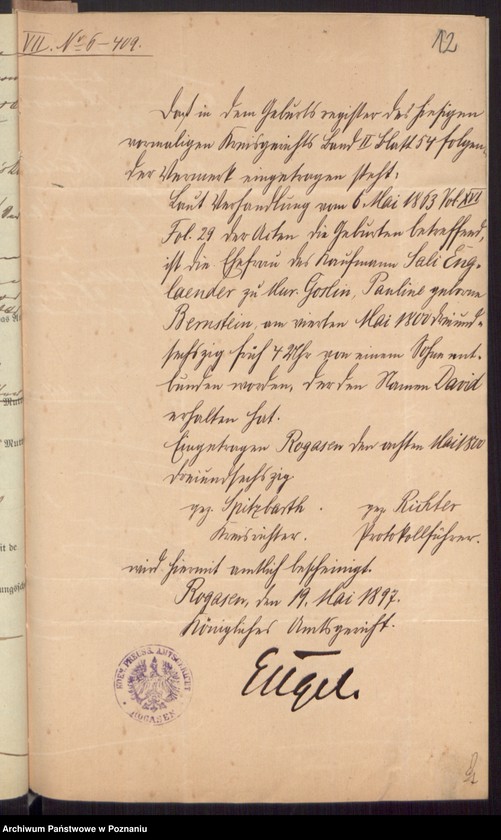 VII. No 6 – 409.
12
Daß in dem Geburtsregister des hiesigen
vormaligen Kreisgerichts Band II Blatt 54 folgen-
der Vermerk eingetragen steht:
Laut Verhandlung vom 6. Mai 1863 Vol. XVI
Fol. 29 der Akten die Geburten betreffend,
ist die Ehefrau des Kaufmann Sali Eng-
laender zu Mur. Goslin, Pauline geborne
Bernstein, am vierten Mai 1800 dreiund-
sechszig früh 4 Uhr von einem Sohne ent-
bunden worden, der den Namen David
erhalten hat.
Eingetragen Rogasen den achten Mai 1800
dreiundsechszig
gez. Spitzbarth. gez. Richter
Kreisrichter. Protokollführer.
wird hiermit amtlich bescheinigt.
Rogasen, den 19. Mai 1897.
Königliches Amtsgericht.
Engel.
KOEN. PREUSS. AMTSGERICHT
ROGASEN
Archiwum Państwowe w Poznaniu